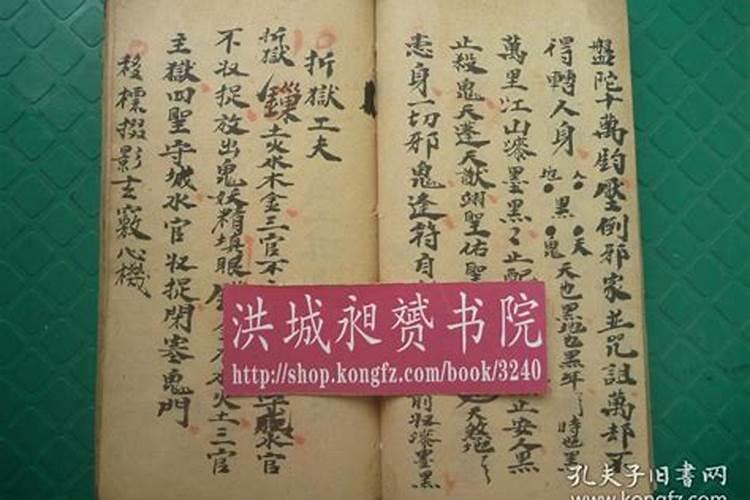 盤陀十萬鈞壓倒邪家並咒詛萬却不
得轉人身 黑 天 鬼 天也黑地也黑年 時也黑
萬里江山漆墨黑 止 正安人黑
止殺鬼天蓬天猷翊聖佑聖 天煞地
患身一切邪鬼逢符自 前 漆墨黑
折獄工夫
折獄 土火水木金三官不 水官
不收捉放出鬼妖精填眼 水火土三官
主獄四聖守城水官收捉閉塞鬼門
移標掇影玄竅心機
洪城昶赟书院
http://shop.kongfz.com/book/3240
孔夫子旧書网
www.kongfz.com